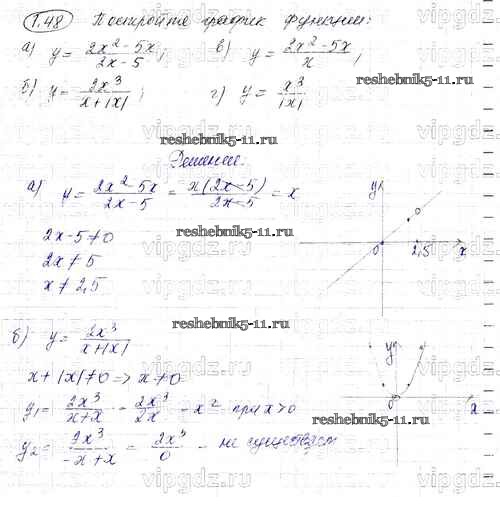 1.48 Постройте график функции:
а) y = (2x² - 5x)/(2x - 5); в) y = (2x² - 5x)/x;
б) y = 2x³/(x + |x|); г) y = x³/|x|
reshebnik5-11.ru
reshebnik5-11.ru
Решение.
а) y = (2x² - 5x)/(2x - 5) = x(2x - 5)/(2x - 5) = x
2x - 5 ≠ 0
2x ≠ 5
x ≠ 2,5
y
0
2,5
x
reshebnik5-11.ru
reshebnik5-11.ru
б) y = 2x³/(x + |x|)
x + |x| ≠ 0 => x ≠ 0
y₁ = 2x³/(x + x) = 2x³/2x = x² при x > 0
y₂ = 2x³/(-x + x) = 2x³/0 - не существует
y
0
x
reshebnik5-11.ru
vipgdz.ru